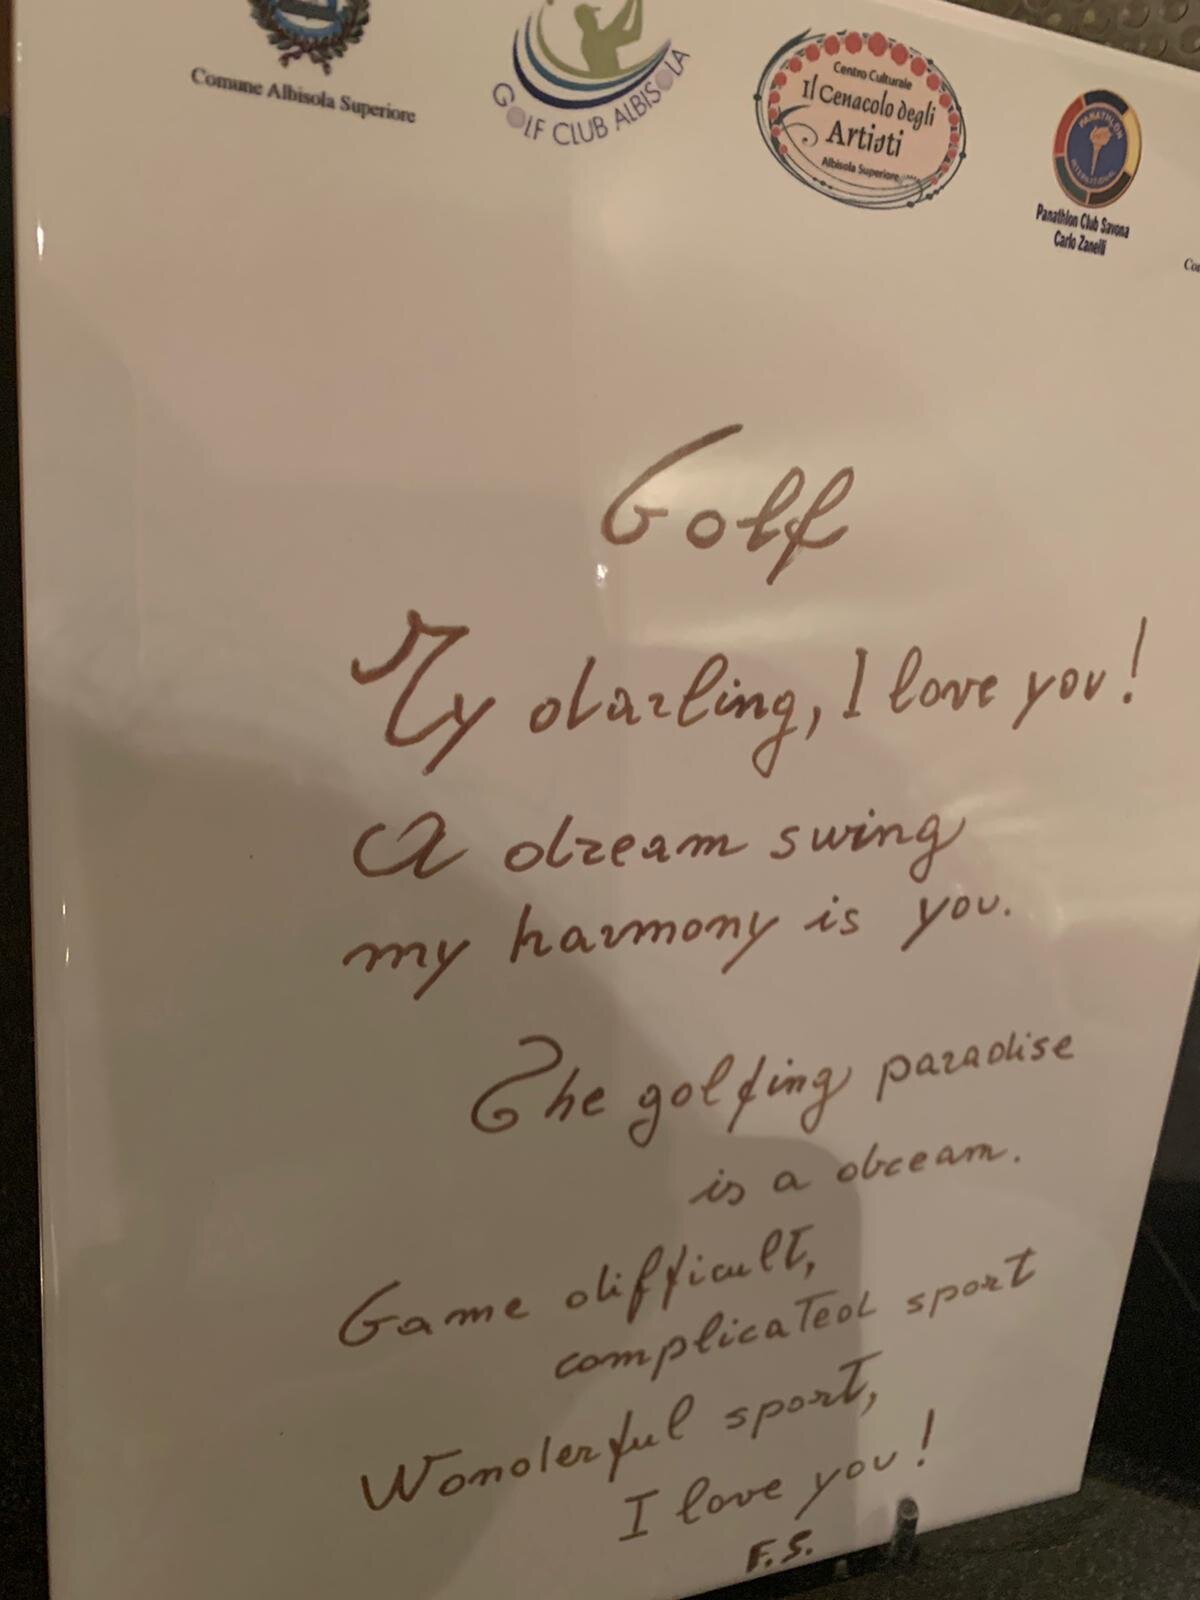 Comune Albisola Superiore
GOLF CLUB ALBISOLA
Centro Culturale
Il Cenacolo degli
Artisti
Albisola Superiore
PANATHLON
INTERNATIONAL
Panathlon Club Savona
Carlo Zanelli
Golf
My darling, I love you!
A dream swing
my harmony is you.
The golfing paradise
is a dream.
Game difficult,
complicated sport
Wonderful sport,
I love you!
F.S.